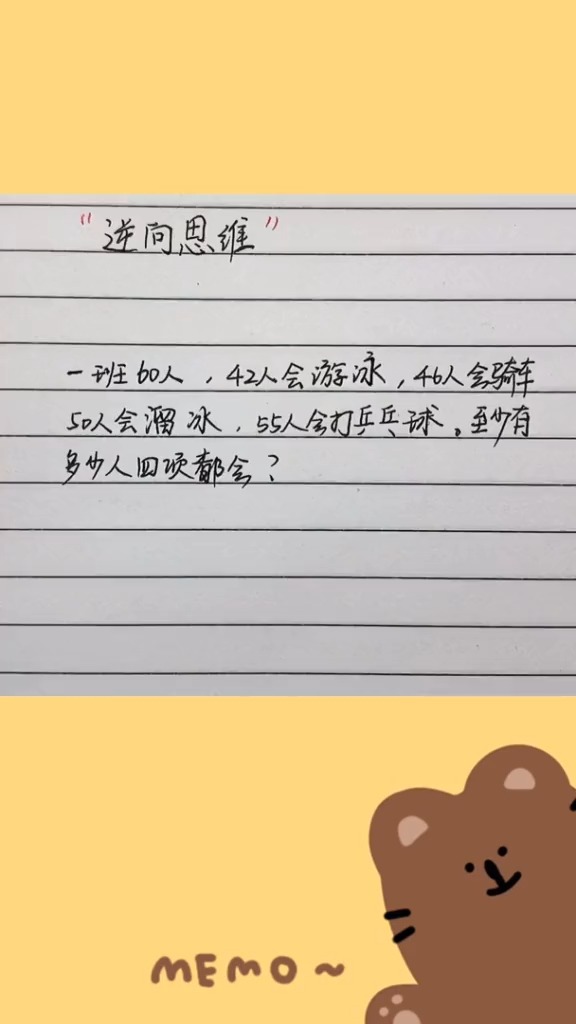 "逆向思维"
一班60人，42人会游泳，46人会骑车
50人会溜冰，55人会打乒乓球。至少有
多少人四项都会？
MEMO ~